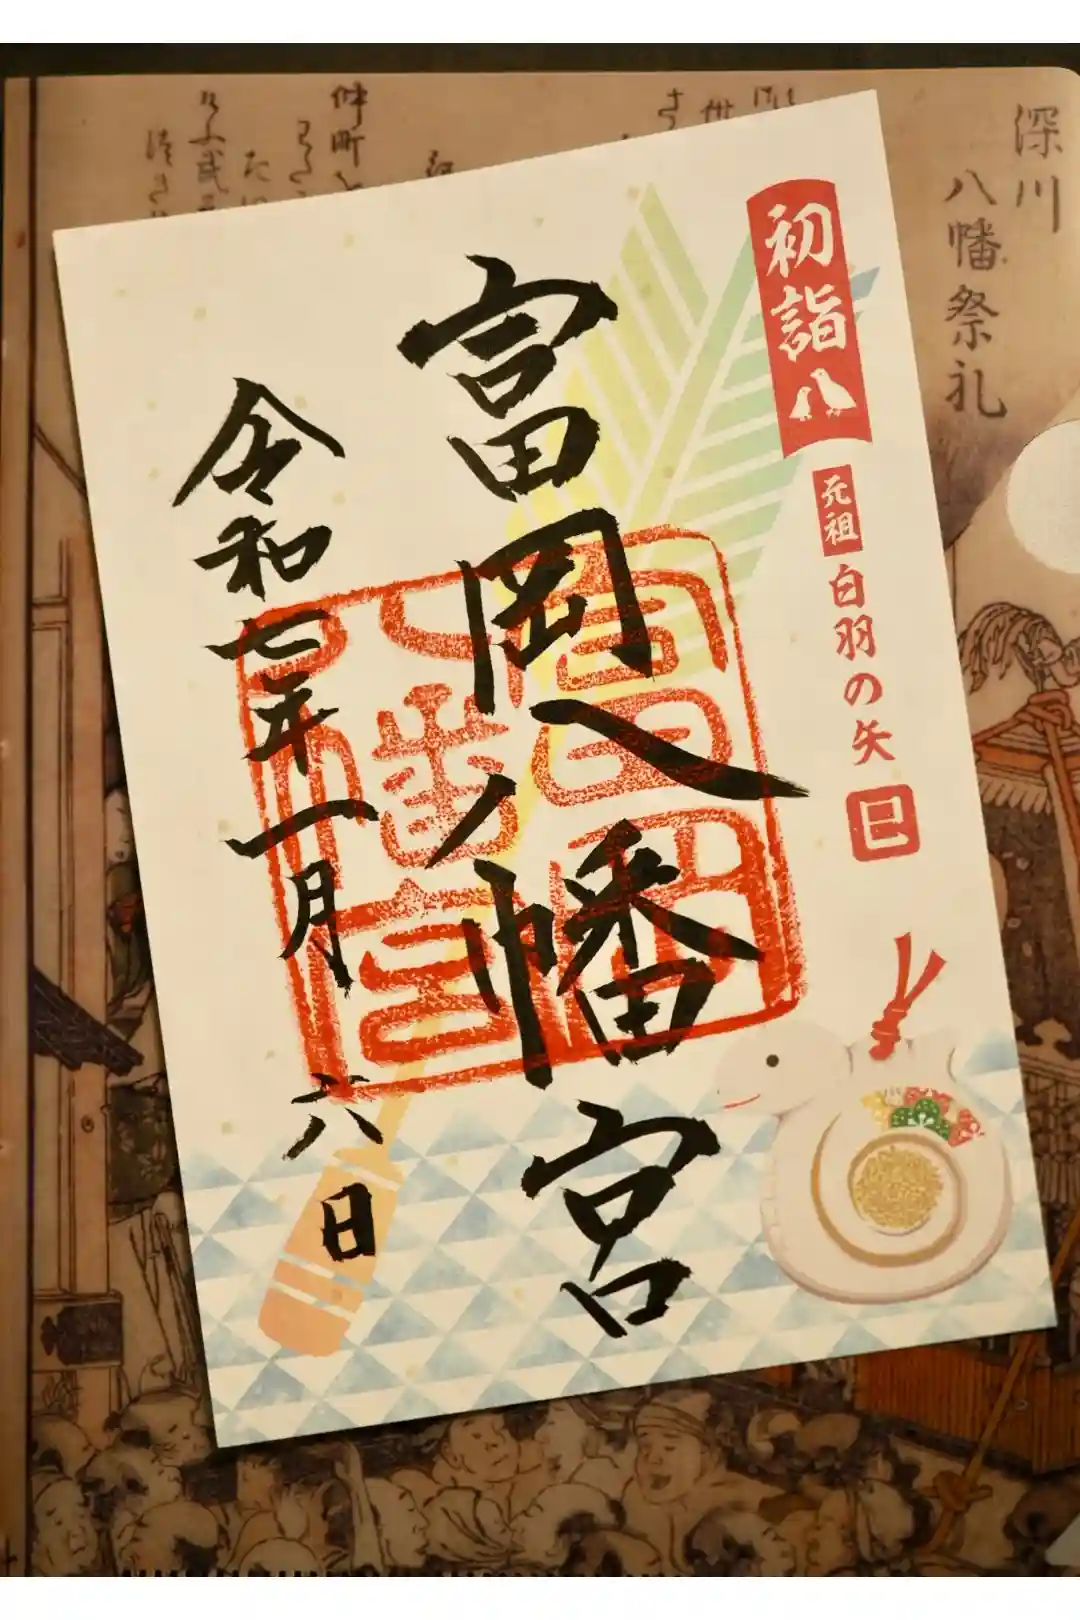 深川
八幡祭礼
仲町
初詣
八
元祖
白羽の矢
巳
富岡八幡宮
富岡
八幡宮
令和七年一月六日